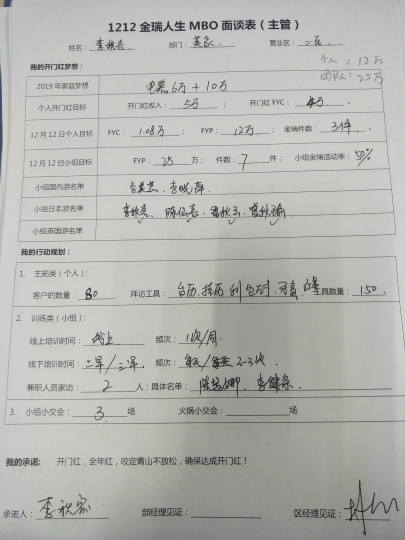 1212 金瑞人生 MBO 面谈表（主管）
姓名： 部门： 营业区：二区
个人：12万
团队：25万
我的开门红梦想：
2019 年家庭梦想 电器6万 + 10万
个人开门红目标 开门红收入：5万； 开门红 FYC：4万
12 月 12 日个人目标 FYC：1.08万； FYP：12万； 金瑞件数：3件.
12 月 12 日小组目标 FYP：25 万； 件数：7 件； 小组金瑞活动率：50%
小组国内游名单
小组日本游名单
小组英国游名单
我的行动规划：
1. 主拓类（个人）：
客户的数量：80 拜访工具：台历、挂历 工具数量：150.
2. 训练类（小组）：
线上培训时间：线上 频次：1次/周
线下培训时间：二早/三早. 频次：2-3次
兼职人员家访：2 人；具体名单：
3. 小组小交会：3 场 火锅小交会： 场
我的承诺： 开门红，全年红，咬定青山不放松，确保达成开门红！
承诺人： 部经理见证： 区经理见证：